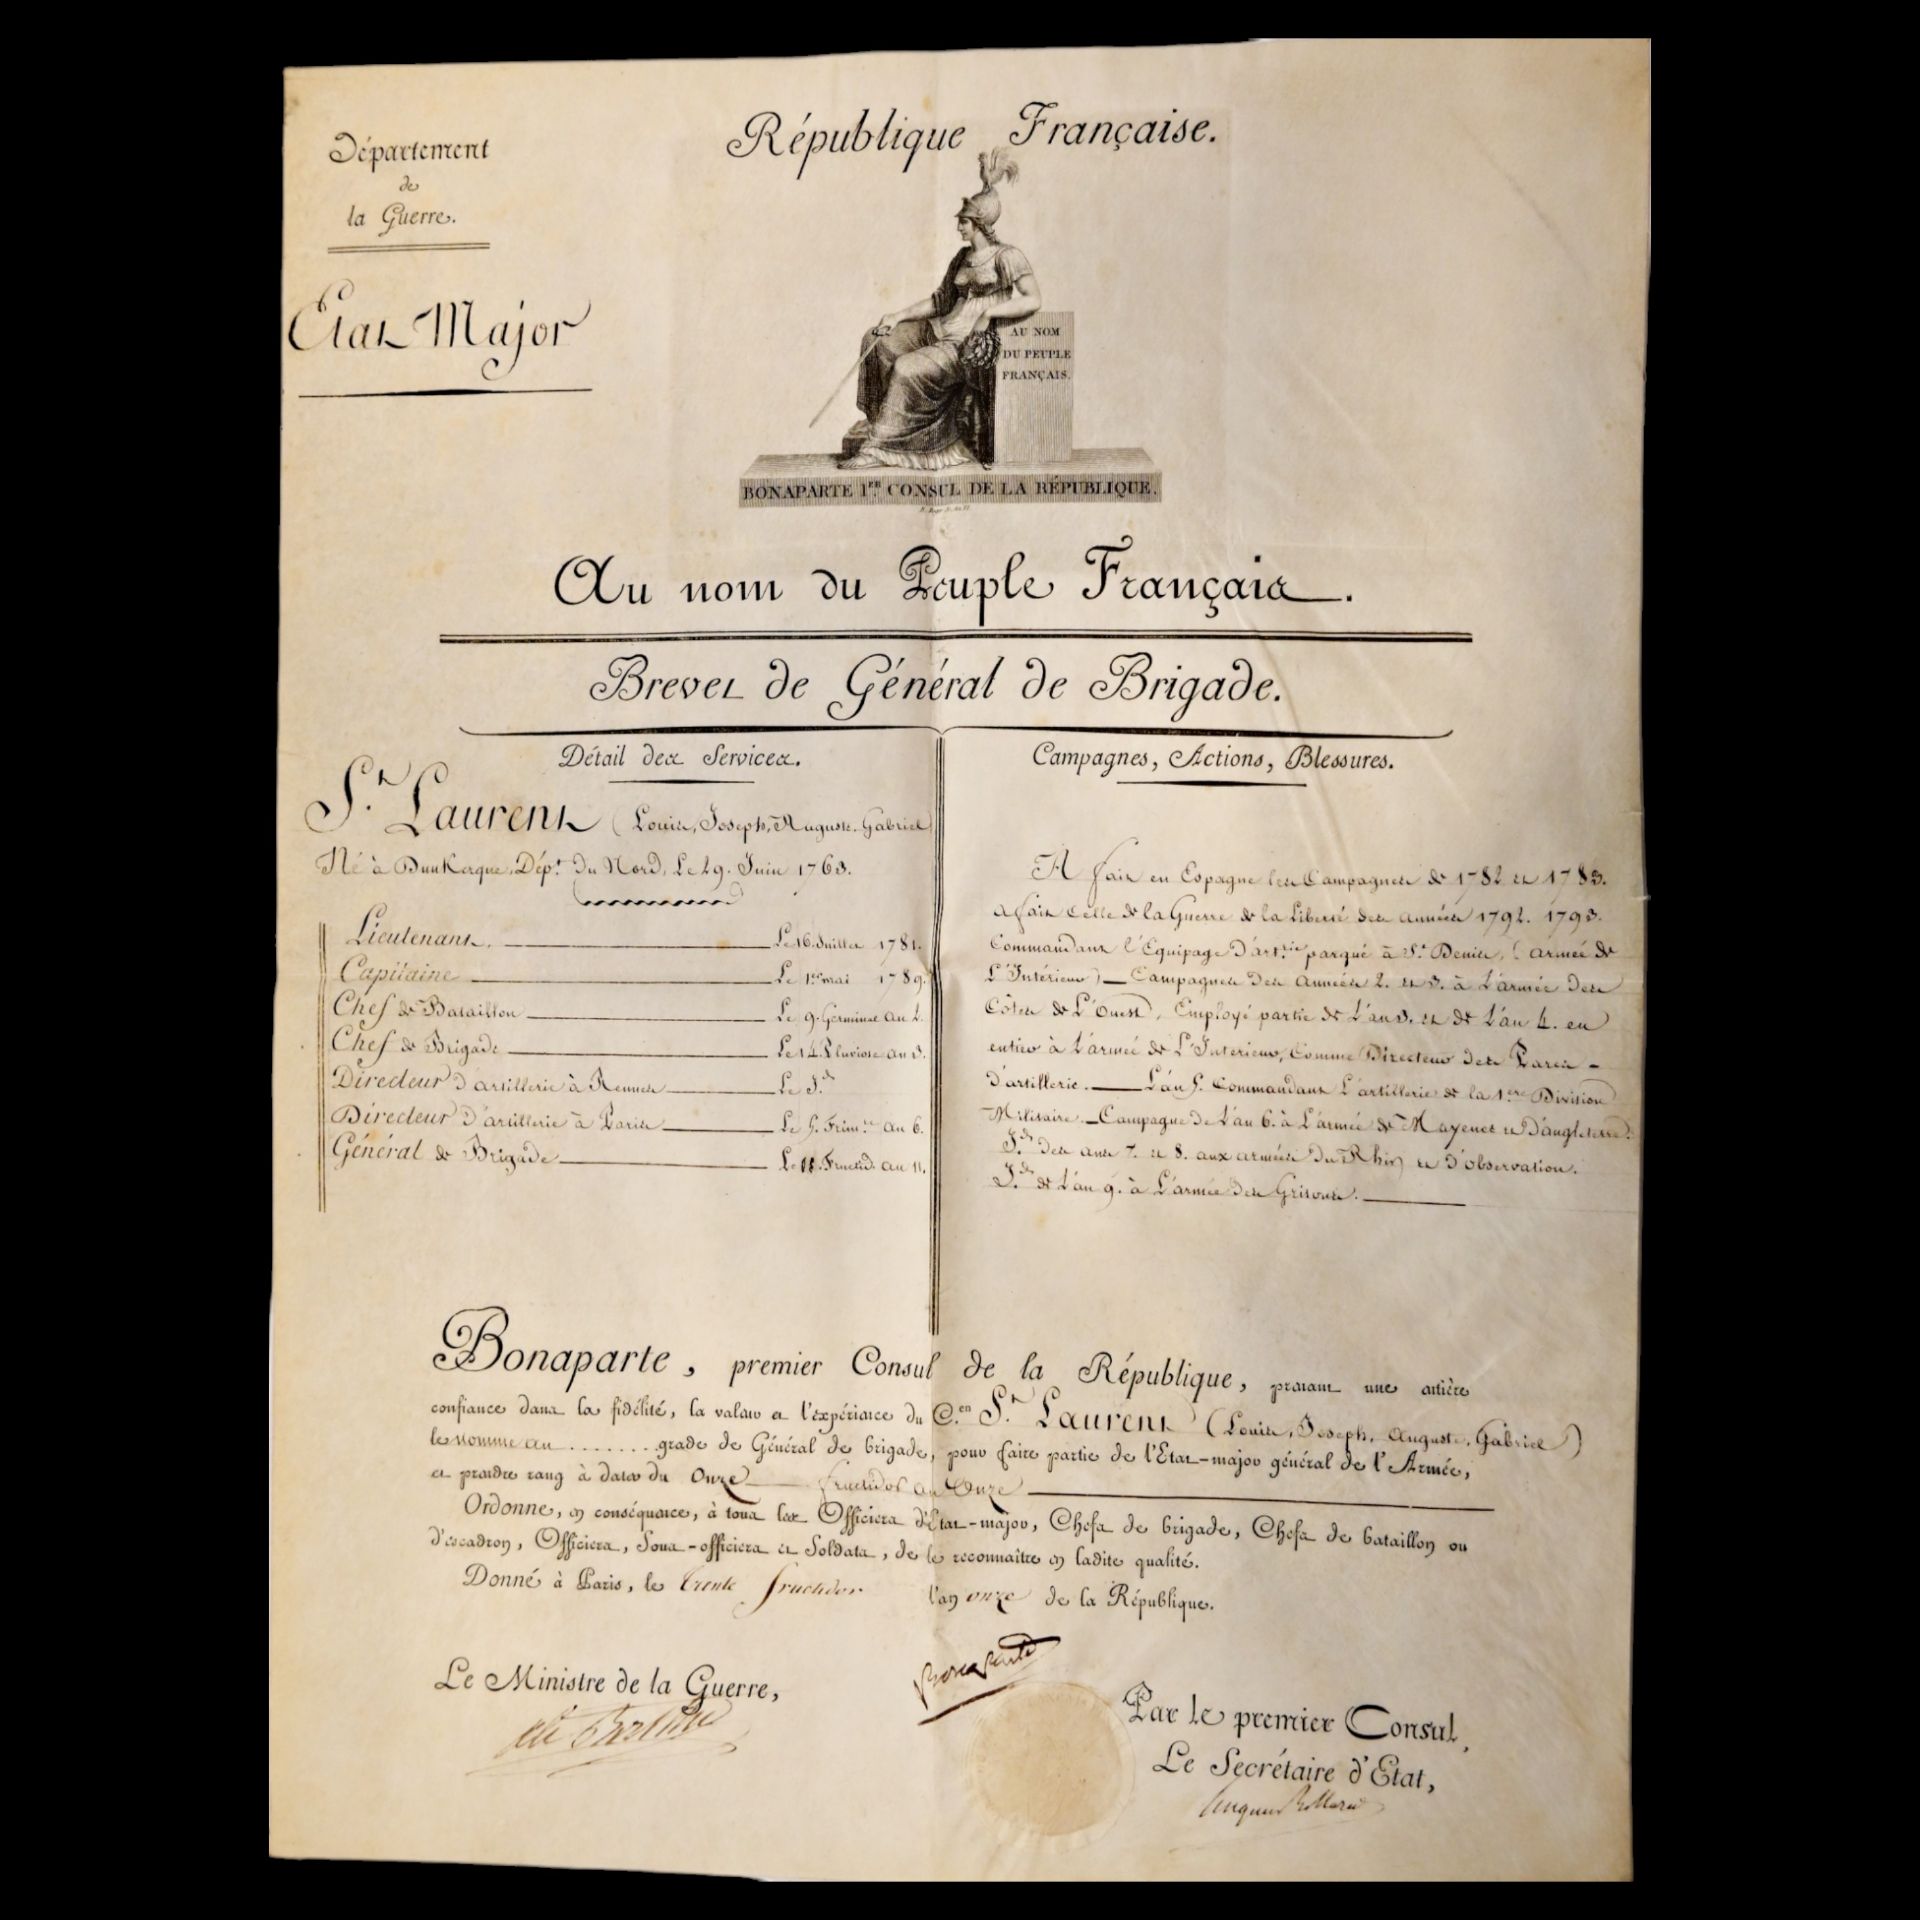 République Française.
Département
de
la Guerre.
Etat Major
AU NOM
DU PEUPLE
FRANÇAIS.
BONAPARTE 1ER CONSUL DE LA RÉPUBLIQUE.
Au nom du Peuple Français.
Brevet de Général de Brigade.
Détail des Services.
St. Laurent (Louis, Joseph, Auguste, Gabriel)
Né à Dunkerque, Dépt. du Nord, Le 29. Juin 1763.
Lieutenant. Le 16. Juillet 1781.
Capitaine Le 1er mai 1789.
Chef de Bataillon Le 9. Germinal an 2.
Chef de Brigade Le 14. Pluviose an 3.
Directeur d'artillerie à Rennes Le Id.
Directeur d'artillerie à Paris Le 5. Frim.re an 6.
Général de Brigade Le 11. Fructid. an 11.
Campagnes, Actions, Blessures.
A fait en Espagne les Campagnes de 1782 et 1783.
a fait Celle de la Guerre de la Liberté des années 1792. 1793.
Commandant l'Equipage d'art.rie parqué à St. Denis, (armée de
L'Intérieur) — Campagnes des années 2. et 3. à L'armée des
Côtes de L'Ouest, Employé partie de L'an 3. et de L'an 4. en
entier à L'armée de L'Interieur, Comme Directeur des Parcs
d'artillerie. — L'an 5. Commandant L'artillerie de la 1ere Division
Militaire. — Campagne de L'an 6. à L'armée de Mayence et d'angleterre.
Id. des ans 7. et 8. aux armées du Rhin et d'observation.
Id. de L'an 9. à L'armée des Grisons.
Bonaparte, premier Consul de la République, prenant une entière
confiance dans la fidélité, la valeur et l'expérience du C.en St. Laurent (Louis, Joseph, Auguste, Gabriel)
le nomme au ........ grade de Général de brigade, pour faire partie de l'Etat-major général de l'Armée,
et prendre rang à dater du Onze fructidor an Onze
Ordonne, en conséquence, à tous les Officiers d'Etat-major, Chefs de brigade, Chefs de bataillon ou
d'escadron, Officiers, Sous-officiers et Soldats, de le reconnaître en ladite qualité.
Donné à Paris, le trente fructidor l'an onze de la République.
Bonaparte
Le Ministre de la Guerre,
Par le premier Consul,
Le Secrétaire d'Etat,